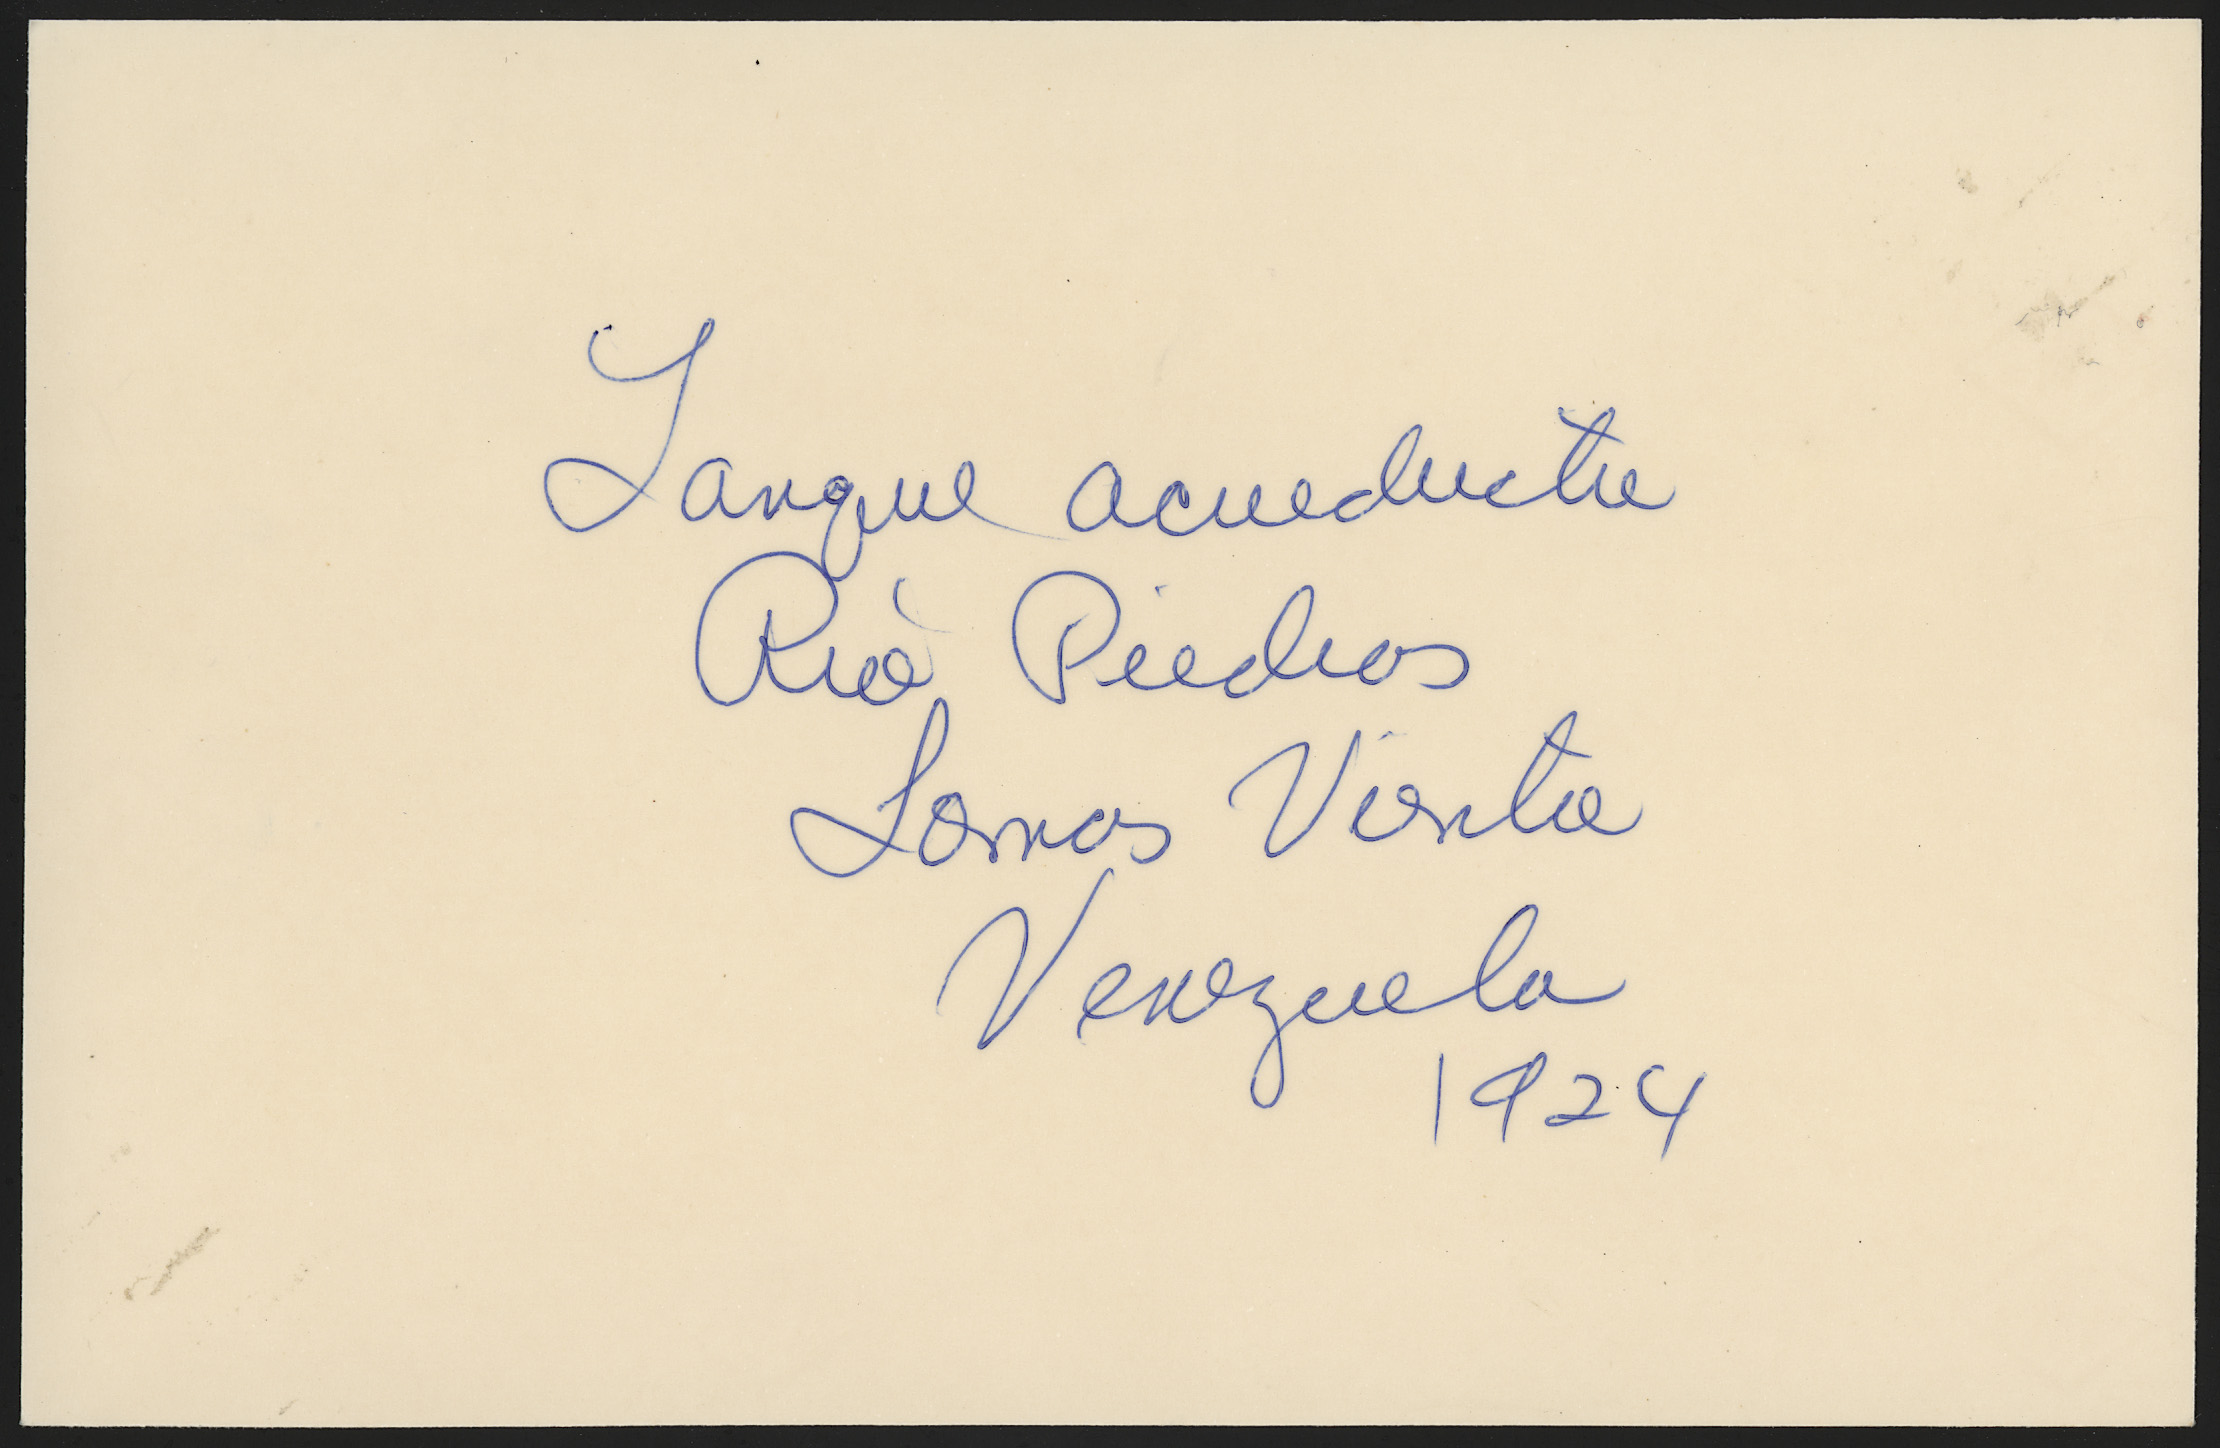 Tanque acueducto
Río Piedras
Lomas Viento
Venezuela
1924